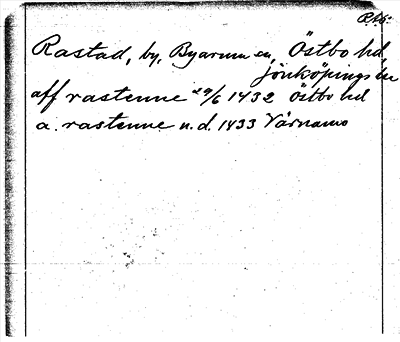 Rastad, by, Byarum sn, Östbo hd
Jönköpings län
aff rastenne 29/6 1432 Östbo hd
a. rastenne u.d. 1433 Värnamo